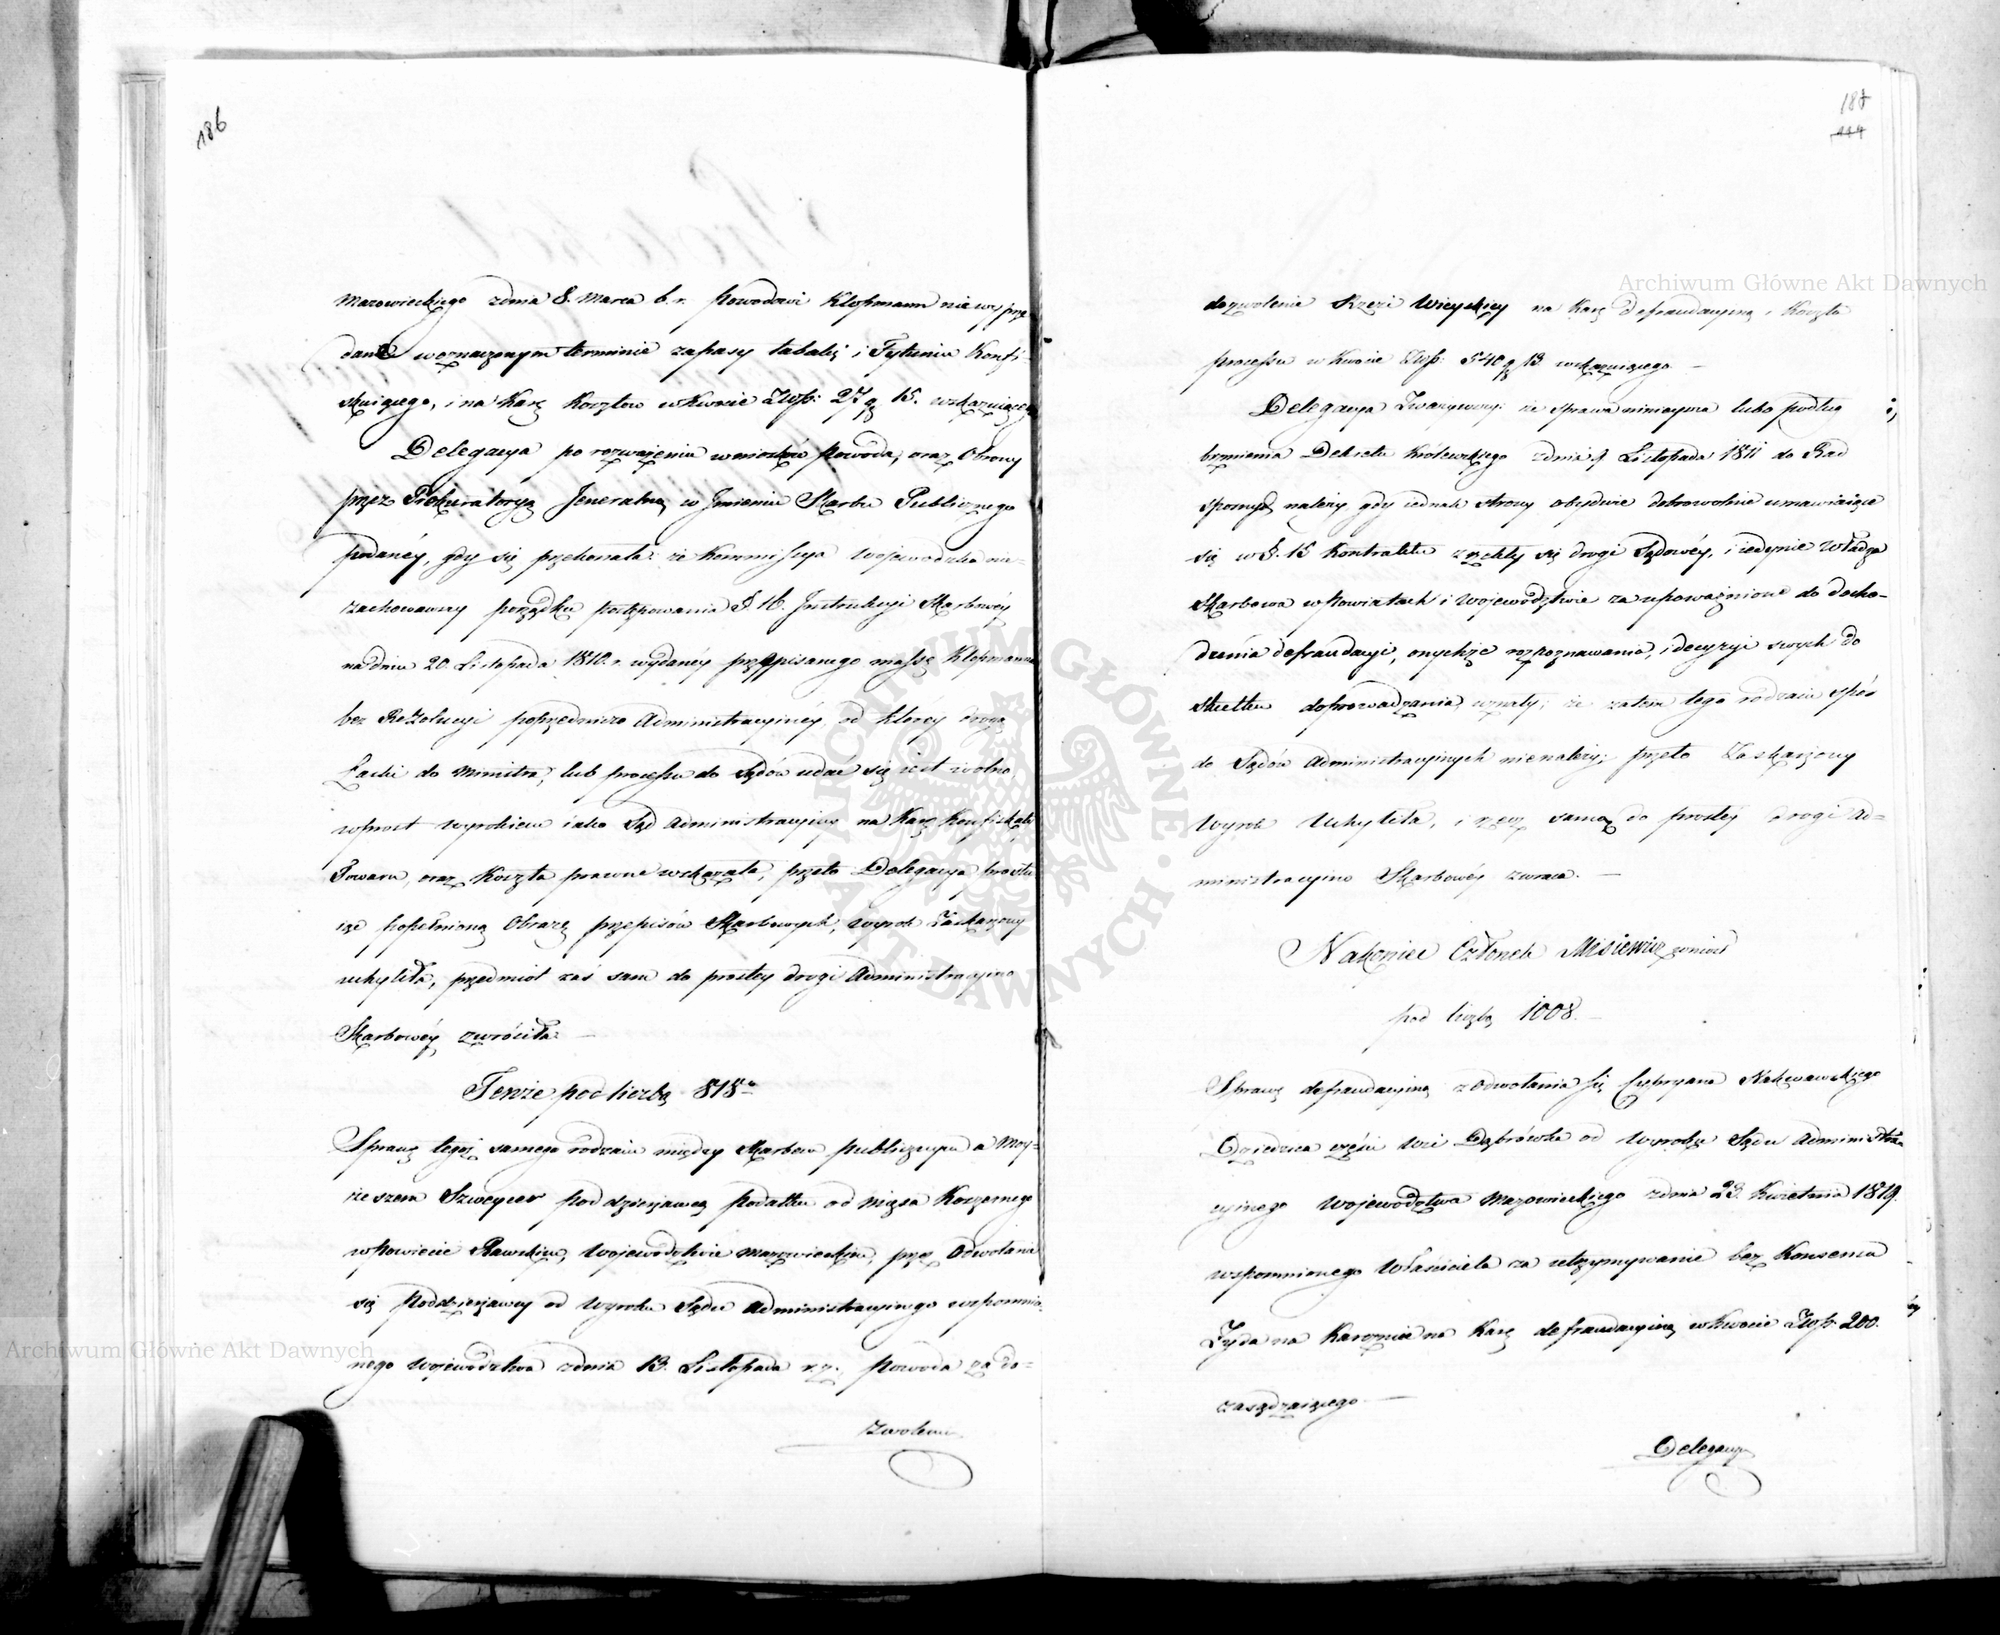 186
Mazowieckiego zdnia 8. Marca b. r. Powodowi Klopmann nie wyprze-
dane w oznaczonym terminie zapasy tabaki i Tytuniu Konfi-
skuiącego, i na Karę Kosztow w kwocie Złp: 27 gr 15. wskazuiącego
Delegacya po rozważeniu wniosków Powoda, oraz Obrony
przez Prokuratoryą Jeneralną w Jmieniu Skarbu Publicznego
podanéy, gdy się przekonała: że Kommissya Wojewodzka nie-
zachowawszy porządku postępowania §. 16. Jnstrukcyi Skarbowéy
na dniu 20. Listopada 1810. r. wydanéy przepisanego massę Klopmanna
bez Rezolucyi poprzedniczo Administracyinéy, od któréy drogą
Łaski do Ministra, lub processu do Sądów udać się iest wolno,
wprost wyrokiem iako Sąd Administracyiny na Karę Konfiskaty
Towaru, oraz Koszta prawne wskazała, przeto Delegacya prostu-
iąc popełnioną Obrazę przepisów Skarbowych, wyrok Zaskarżony
uchyliła, przedmiot zaś sam do prostey drogi Administracyino
Skarbowéy zwróciła. —
Tenże pod liczbą 818.
Sprawę tegoż samego rodzaiu między Skarbem publicznym a Moy-
żeszem Szweycer poddzierżawcą podatku od mięsa Koszernego
w Powiecie Rawskim, Województwie Mazowieckim, przez Odwołanie
się Poddzierżawcy od Wyroku Sądu Administracyinego wspomnio-
nego Województwa zdnia 13. Listopada r. z. Powoda za do-
zwolenie
187
dozwolenie Rzezi Wieyskiey na Karę defraudacyiną i Koszta
processu w kwocie Złp: 540 gr 13. wskazuiącego —
Delegacya Zważywszy: że sprawa ninieysza lubo podług
brzmienia Dekretu Królewskiego zdnia 9 Listopada 1811 do Rad
spornych należy gdy iednak strony obydwie dobrowolnie umawiaiące
się w §. 15 Kontraktu zrzekły się drogi Sądowéy, i iedynie Władze
Skarbowe w Powiatach i Województwie za upoważnione do docho-
dzenia defraudacyi, onychże rozpoznawania, i decyzyi swych do
skutku doprowadzania uznały; że zatem tego rodzaiu spór
do Sądów Administracyinych nienależy; przeto Zaskarżony
Wyrok Uchyliła, i rzecz samą do prostéy drogi Ad-
ministracyino Skarbowéy zwraca. —
Nakoniec Członek Misiewicz wniosł
pod liczbą 1008. —
Sprawę defraudacyiną z odwołania się Cypryana Nakwaskiego
Dziedzica części Wsi Dąbrówka od Wyroku Sądu Administra-
cyinego Województwa Mazowieckiego zdnia 23. Kwietnia 1819.
wspomnionego Właściciela za utrzymywanie bez Konsensu
Żyda na Karczmie na Karę defraudacyiną w kwocie Złp: 200.
zasądzaiącego —
Delegacya
Archiwum Główne Akt Dawnych
Archiwum Główne Akt Dawnych
ARCHIWUM GŁÓWNE · AKT DAWNYCH ·